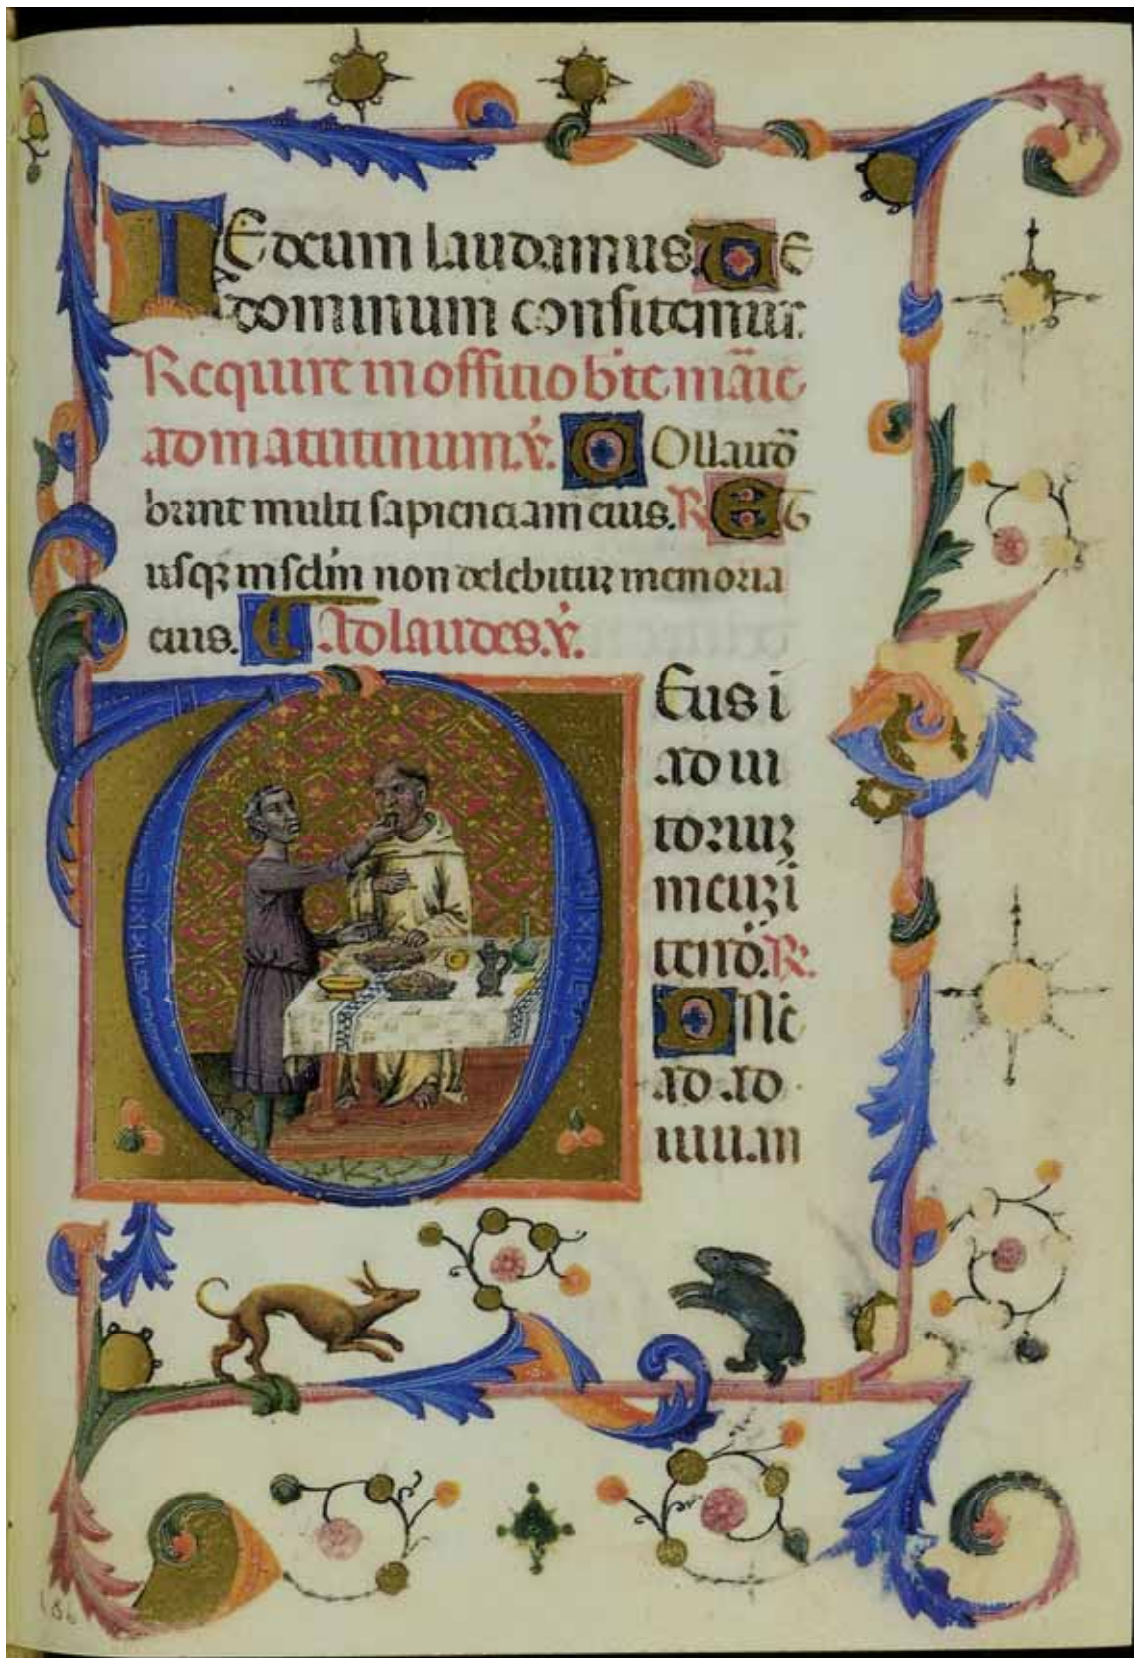 TE deum laudamus. TE
dominum confitemur.
Require in offitio bte marie
ad matutinum. v. COllaudā
bunt multi sapienciam eius. R ET
usqz in sclm non delebitur memoria
eius. Ad laudes. v.
DEus i
ad iu
toriuz
meuz i
tendē. R.
DNe
ad ad
iuuan